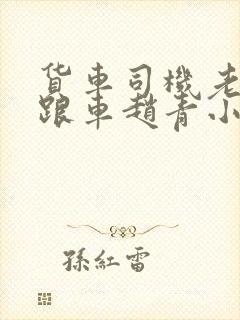 货車司機老
跟車趙青小
孫紅雷